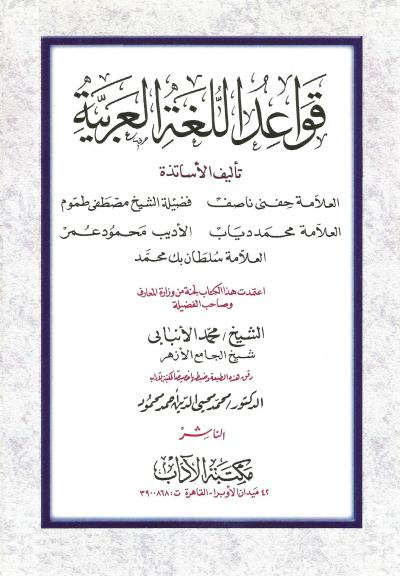 قَوَاعِدُ اللُّغَةِ العَرَبِيَّةِ
تأليف الأساتذة
العلّامة حفنى ناصف فضيلة الشيخ مصطفى طموم
العلّامة محمد دياب الأديب محمود عمر
العلّامة سلطان بك محمد
اعتمدت هذا الكتاب لجنة من وزارة المعارف
وصاحب الفضيلة
الشيخ / محمد الأنبابى
شيخ الجامع الأزهر
هذه الطبعة
الدكتور / محمد محيى الدين أحمد محمود
الناشر
مكتبة الآداب
٤٢ ميدان الأوبرا - القاهرة ت: ٣٩٠٠٨٦٨